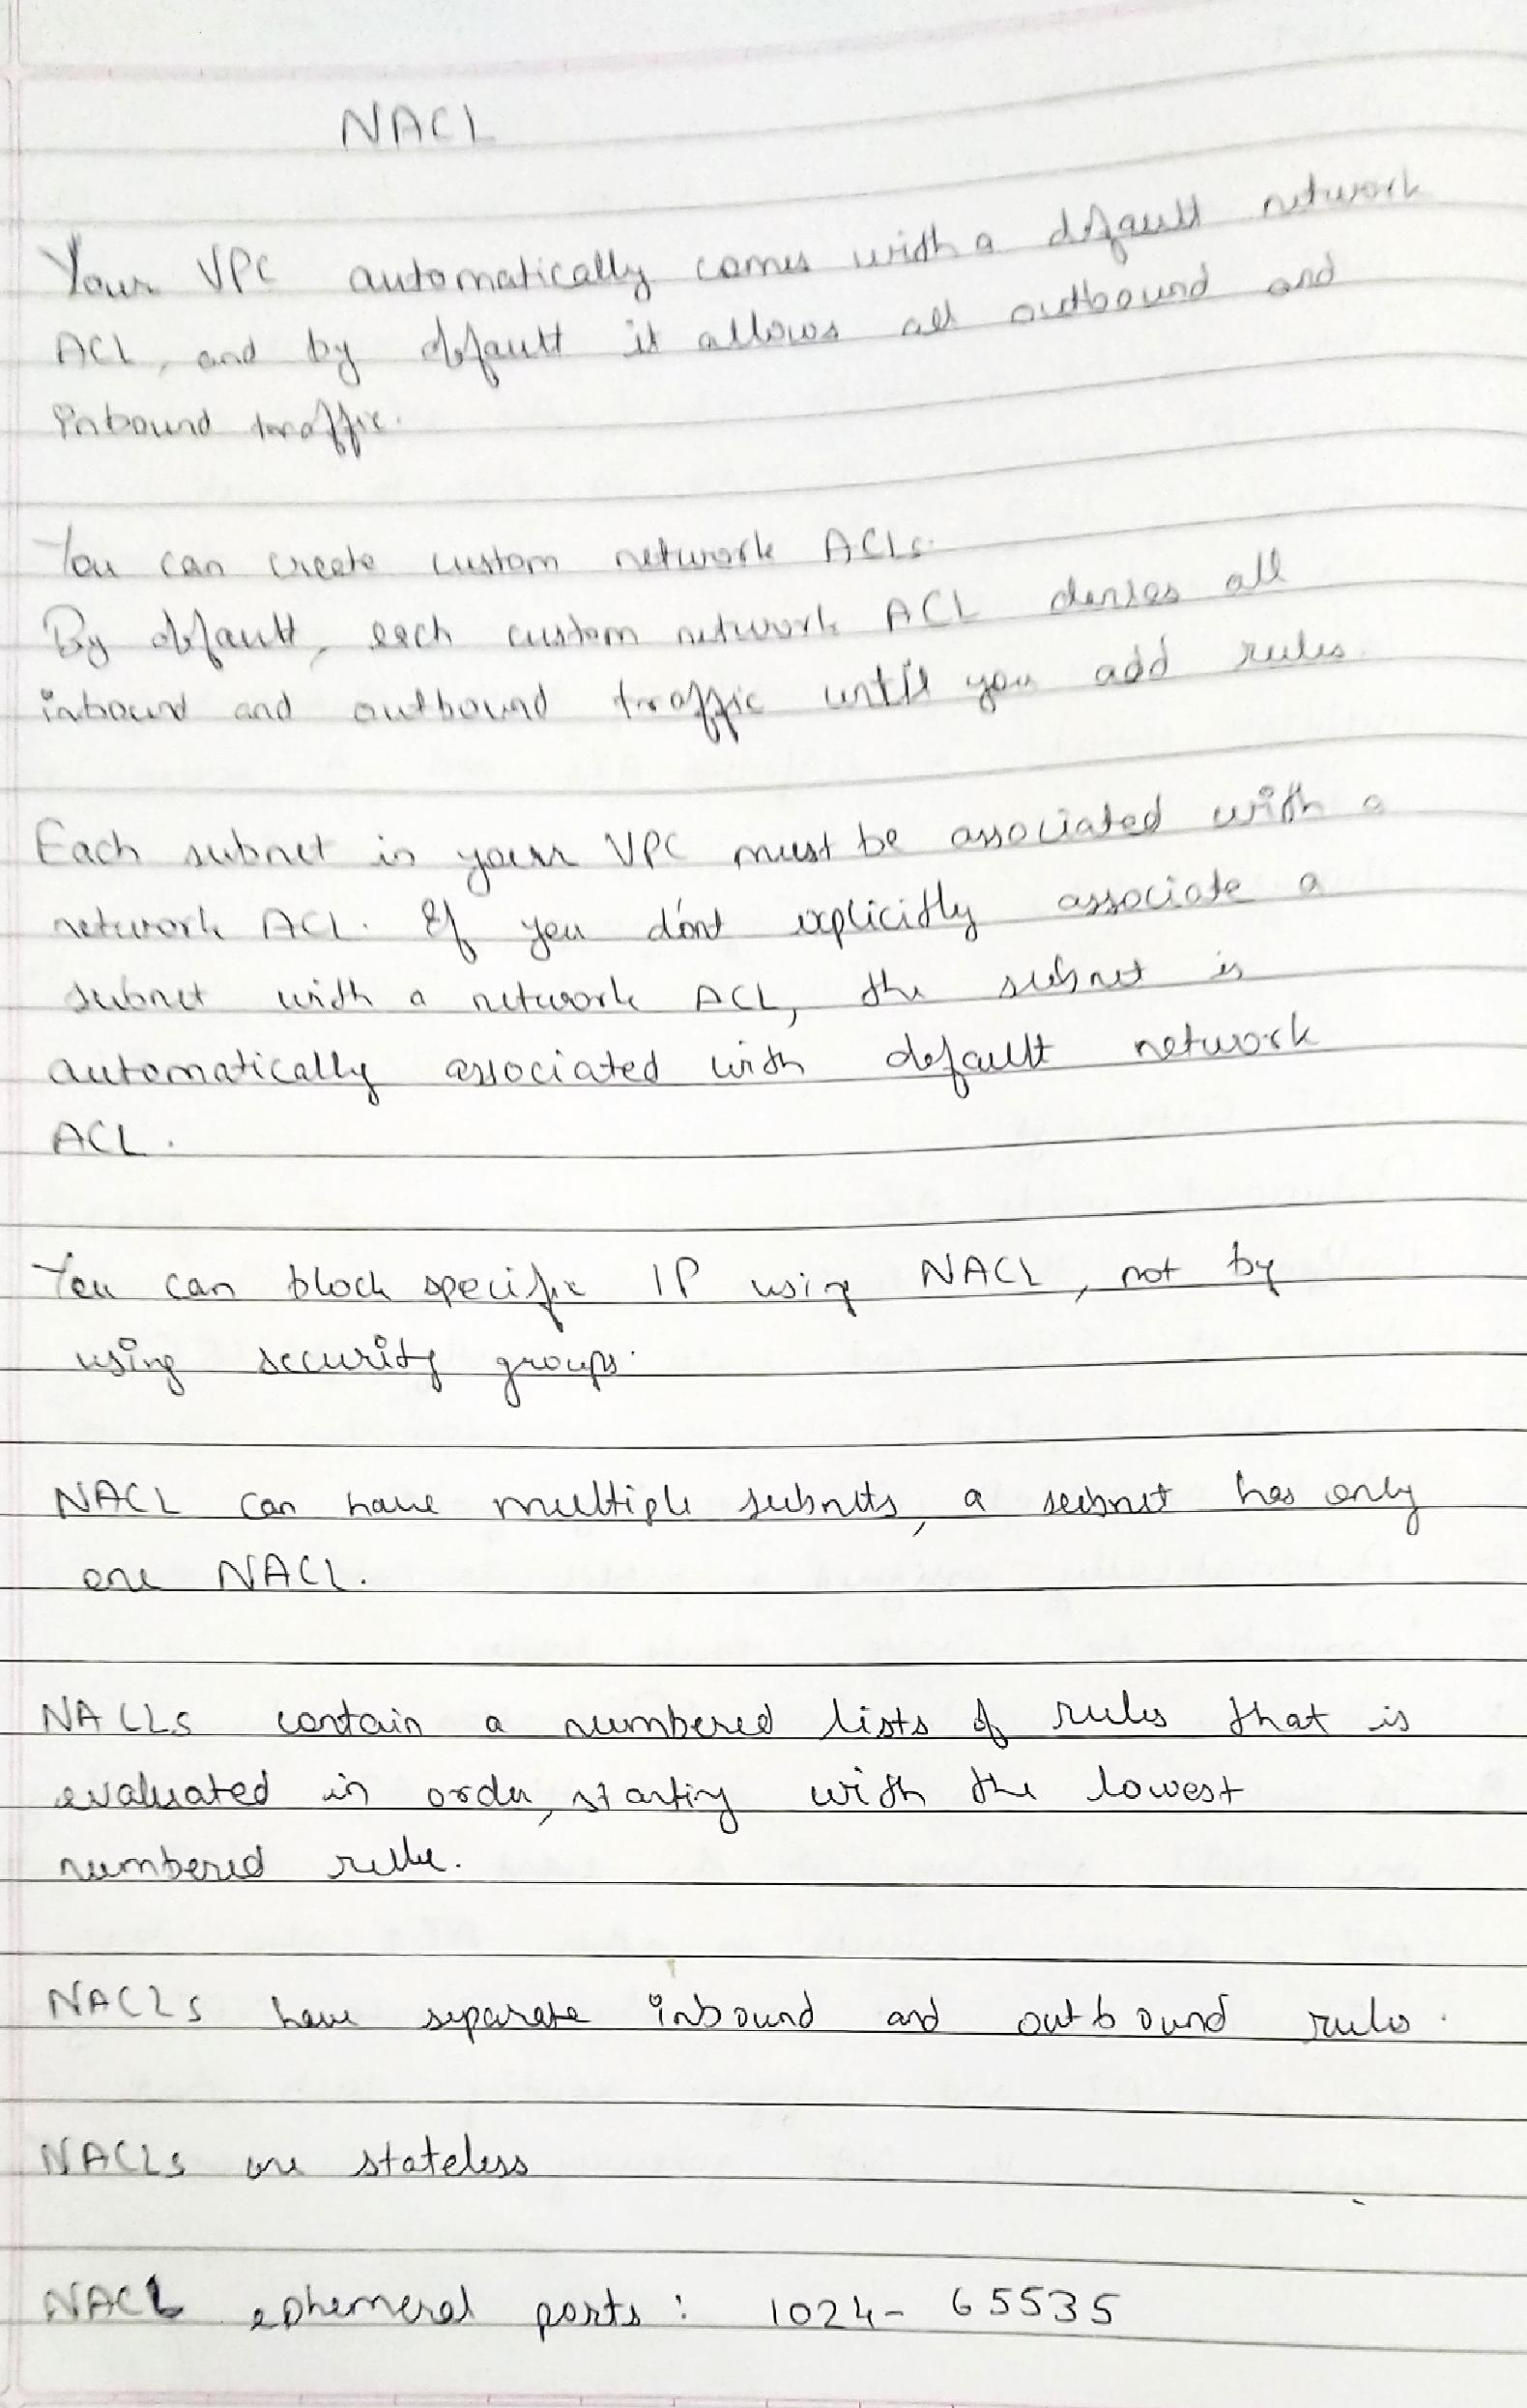 NACL
Your VPC automatically comes with a default network
ACL, and by default it allows all outbound and
inbound traffic.
You can create custom network ACLs.
By default, each custom network ACL denies all
inbound and outbound traffic until you add rules.
Each subnet in your VPC must be associated with a
network ACL. If you don't explicitly associate a
subnet with a network ACL, the subnet is
automatically associated with default network
ACL.
You can block specific IP using NACL, not by
using security groups.
NACL can have multiple subnets, a subnet has only
one NACL.
NACLs contain a numbered lists of rules that is
evaluated in order, starting with the lowest
numbered rule.
NACLs have separate inbound and outbound rules.
NACLs are stateless
NACL ephemeral ports: 1024- 65535